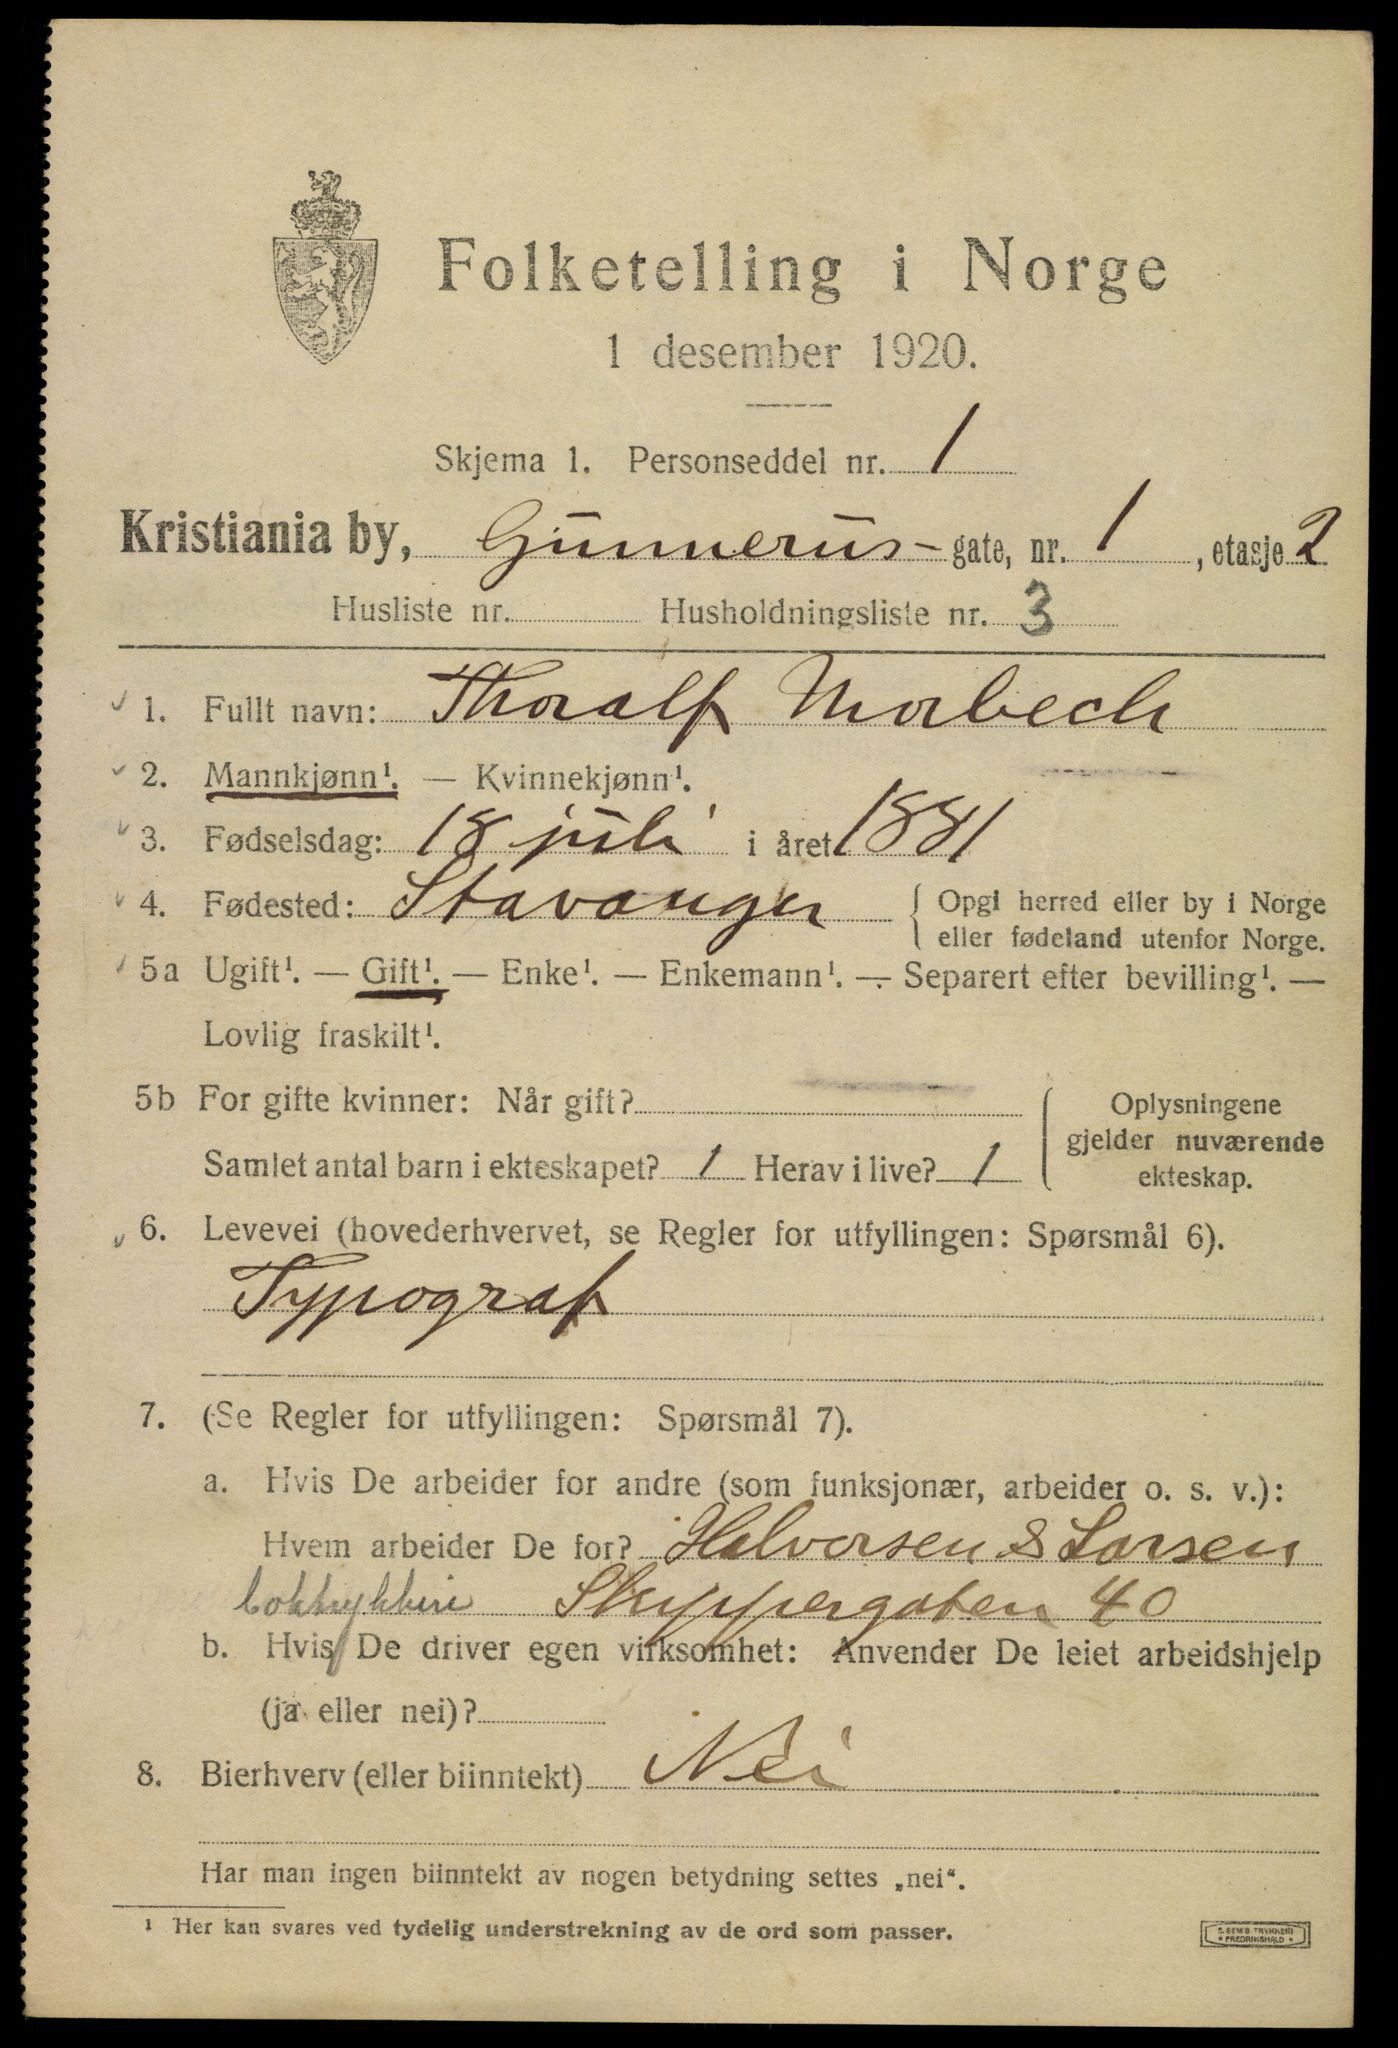 Folketelling i Norge
1 desember 1920.
Skjema 1. Personseddel nr. 1
Kristiania by, Gunnerus-gate, nr. 1, etasje 2
Husliste nr. Husholdningsliste nr. 3
1. Fullt navn: Thoralf Morbech
2. Mannkjønn¹. — Kvinnekjønn¹.
3. Fødselsdag: 18 juli i året 1881
4. Fødested: Stavanger { Opgi herred eller by i Norge
eller fødeland utenfor Norge.
5a Ugift¹. — Gift¹. — Enke¹. — Enkemann¹. — Separert efter bevilling¹. —
Lovlig fraskilt¹.
5b For gifte kvinner: Når gift?
Samlet antal barn i ekteskapet? 1 Herav i live? 1
{ Oplysningene
gjelder nuværende
ekteskap.
6. Levevei (hovederhvervet, se Regler for utfyllingen: Spørsmål 6).
Typograf
7. (Se Regler for utfyllingen: Spørsmål 7).
a. Hvis De arbeider for andre (som funksjonær, arbeider o. s. v.):
Hvem arbeider De for? Halvorsen & Larsen
boktrykkeri Skippergaten 40
b. Hvis De driver egen virksomhet: Anvender De leiet arbeidshjelp
(ja eller nei)?
8. Bierhverv (eller biinntekt) Nei
Har man ingen biinntekt av nogen betydning settes „nei“.
¹ Her kan svares ved tydelig understrekning av de ord som passer.
E. SEM'S TRYKKERI
FREDRIKSHALD